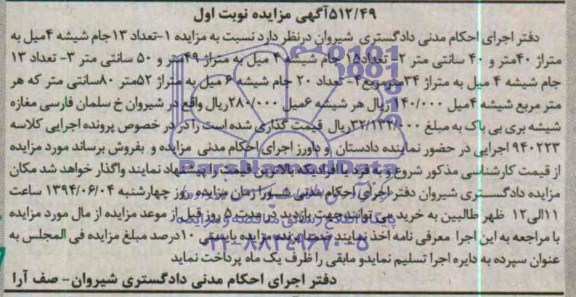 ۵۱۲/۴۹آگهی مزایده نوبت اول
دفتر اجرای احکام مدنی دادگستری شیروان درنظر دارد نسبت به مزایده ۱-تعداد ۱۳جام شیشه ۴میل به
متراژ ۴۰متر و ۴۰ سانتی متر ۲-تعداد۱۵ جام شیشه ۴ میل به متراژ ۴۹متر و ۵۰ سانتی متر ۳- تعداد ۱۳
جام شیشه ۴ میل به متراژ ۳۴مترمربع۴- تعداد ۲۰ جام شیشه ۶ میل به متراژ ۵۲متر ۸۰سانتی متر که هر
متر مربع شیشه ۴میل ۱۴۰/۰۰۰ ریال هر شیشه ۶میل ۲۸۰/۰۰۰ریال واقع در شیروان خ سلمان فارسی مغازه
شیشه بری بی باک به مبلغ ۳۲/۱۳۲/۰۰۰ریال قیمت گذاری شده است راکر در خصوص پرونده اجرایی کلاسه
۹۴۰۲۲۳ اجرایی در حضور نماینده دادستان و داورز اجرای احکام مدنی مزایده و بفروش برساند مورد مزایده
از قیمت کارشناسی مذکور شروع و به فرد یا افرادیکه بالاترین قیمت را پیشنهاد نمایند واگذار خواهد شد مکان
مزایده دادگستری شیروان دفتر اجرای احکام مدنی شورا زمان مزایده روز چهارشنبه ۱۳۹۴/۰۶/۰۴ ساعت
۱۱الی۱۲ ظهر طالبین به خرید می توانند جهت بازدید در مدت ۵ روز قبل از موعد مزایده از مال مورد مزایده
با مراجعه به این اجرا معرفی نامه اخذ نمایند ضمنا برنده مزایده بایستی ۱۰درصد مبلغ مزایده فی المجلس به
عنوان سپرده به دایره اجرا تسلیم نمایدو مابقی را ظرف یک ماه پرداخت نماید
دفتر اجرای احکام مدنی دادگستری شیروان- صف آرا
ParsNamadData
۰۲۱-۸۸۳۴۹۶۷۰-۵